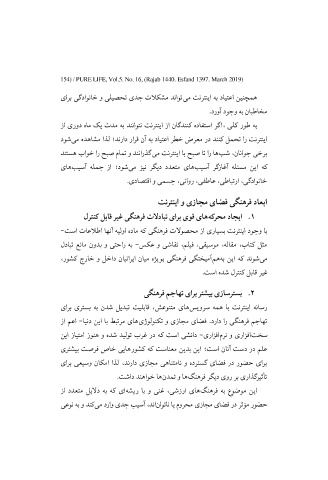 154) / PURE LIFE, Vol.5. No. 16, (Rajab 1440. Esfand 1397. March 2019)
همچنین اعتیاد به اینترنت می‌تواند مشکلات جدی تحصیلی و خانوادگی برای
مخاطبان به وجود آورد.
به طور کلی ،اگر استفاده کنندگان از اینترنت نتوانند به مدت یک ماه دوری از
اینترنت را تحمل کنند در معرض خطر اعتیاد به آن قرار دارند؛ لذا مشاهده می‌شود
برخی جوانان، شب‌ها را تا صبح با اینترنت می‌گذرانند و تمام صبح را خواب هستند
که این مسئله آغازگر آسیب‌های متعدد دیگر نیز می‌شود؛ از جمله آسیب‌های
خانوادگی، ارتباطی، عاطفی، روانی، جسمی و اقتصادی.
ابعاد فرهنگی فضای مجازی و اینترنت
۱. ایجاد محرکه‌های قوی برای تبادلات فرهنگی غیر قابل کنترل
با وجود اینترنت بسیاری از محصولات فرهنگی که ماده اولیه آنها اطلاعات است-
مثل کتاب، مقاله، موسیقی، فیلم، نقاشی و عکس- به راحتی و بدون مانع تبادل
می‌شوند که این به‌هم‌آمیختگی فرهنگی بویژه میان ایرانیان داخل و خارج کشور،
غیر قابل کنترل شده است.
۲. بسترسازی بیشتر برای تهاجم فرهنگی
رسانه اینترنت با همه سرویس‌های متنوعش، قابلیت تبدیل شدن به بستری برای
تهاجم فرهنگی را دارد. فضای مجازی و تکنولوژی‌های مرتبط با این دنیا- اعم از
سخت‌افزاری و نرم‌افزاری- دانشی است که در غرب تولید شده و هنوز امتیاز این
علم در دست آنان است؛ این بدین معناست که کشورهایی خاص فرصت بیشتری
برای حضور در فضای گسترده و نامتناهی مجازی دارند، لذا امکان وسیعی برای
تأثیرگذاری بر روی دیگر فرهنگ‌ها و تمدن‌ها خواهند داشت.
این موضوع به فرهنگ‌های ارزشی، غنی و با ریشه‌ای که به دلایل متعدد از
حضور مؤثر در فضای مجازی محروم یا ناتوان‌اند، آسیب جدی وارد می‌کند و به نوعی